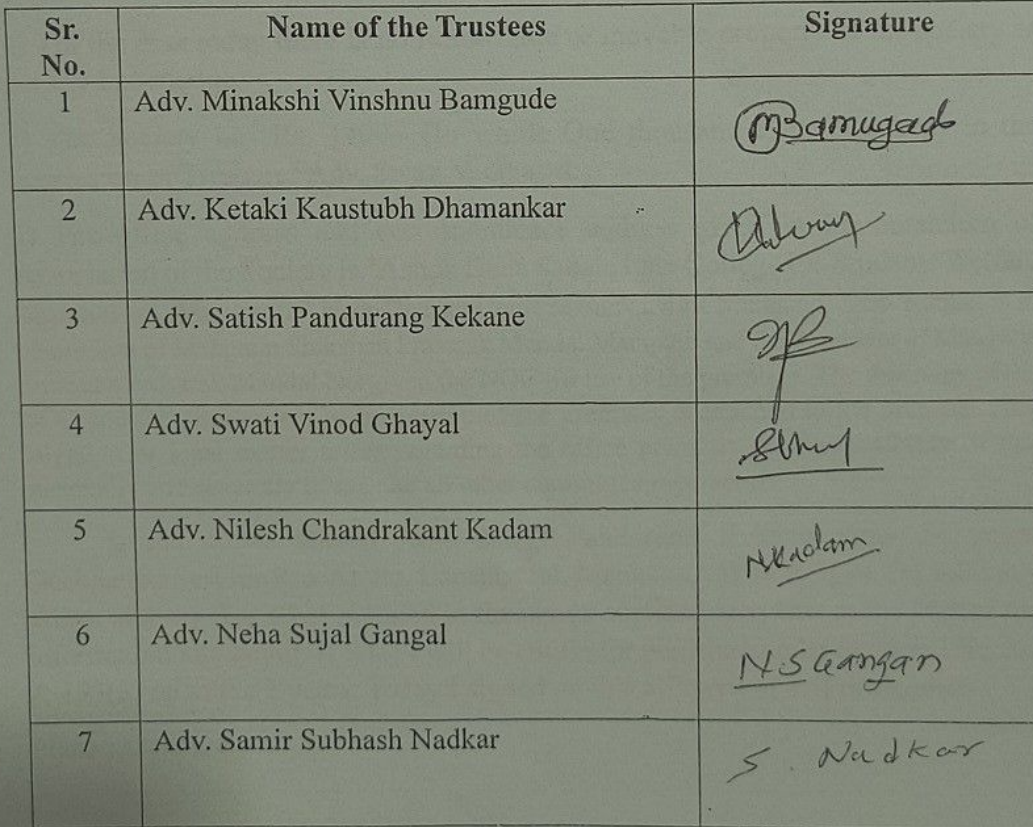 Sr. No. Name of the Trustees Signature
1 Adv. Minakshi Vinshnu Bamgude
2 Adv. Ketaki Kaustubh Dhamankar
3 Adv. Satish Pandurang Kekane
4 Adv. Swati Vinod Ghayal
5 Adv. Nilesh Chandrakant Kadam NKadam
6 Adv. Neha Sujal Gangal N.S Gangan
7 Adv. Samir Subhash Nadkar S. Nadkar